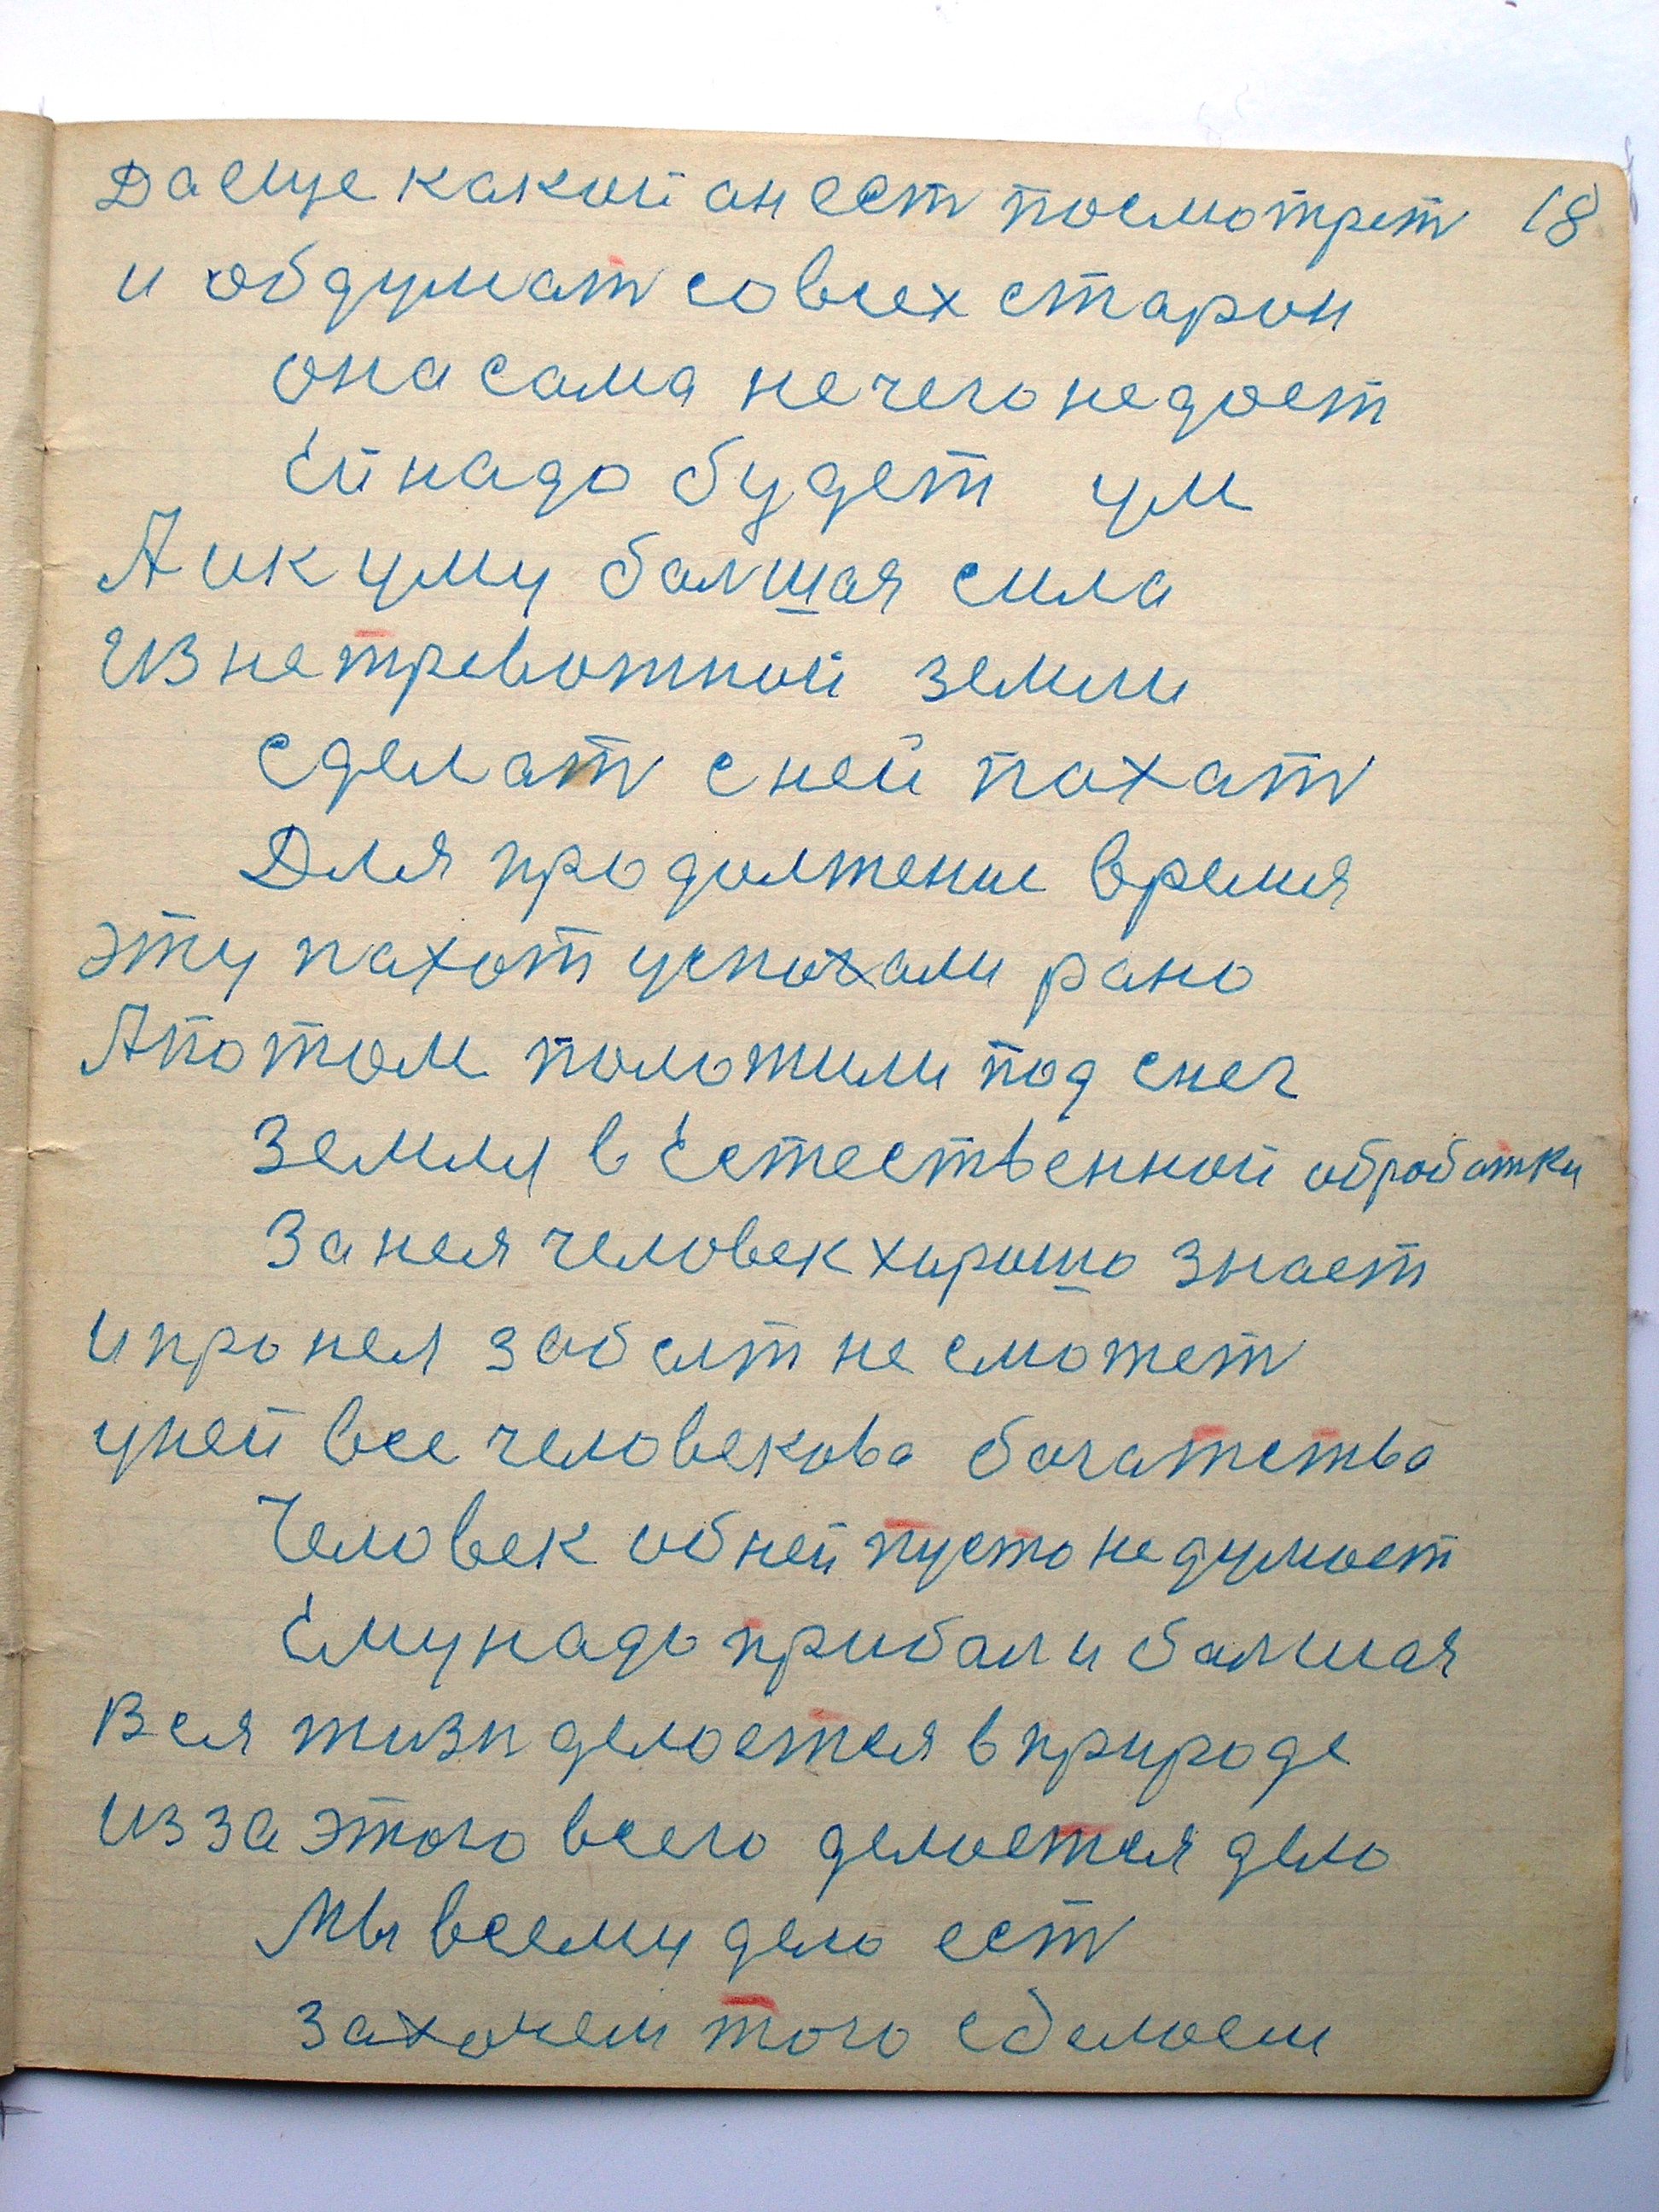 Да еще какой он ест посмотрет 18
и обдумат со всех старон
она сама нечего не доет
Ей надо будет ум
А и к уму балшая сила
Из нетревожной земли
сделат с ней пахат
Для продолжение время
эту пахот успохали рано
А потом положили под снег
Земля в Естественной обработки
За нея человек хорошо знает
и про нея забыт не сможет
у ней все человекова богатства
Человек об ней пусто не думоет
Ему надо прибал и балшая
Вся жизн делоется в природе
из за этого всего делоется дело
Мы всему дело ест
захочем того сделоем